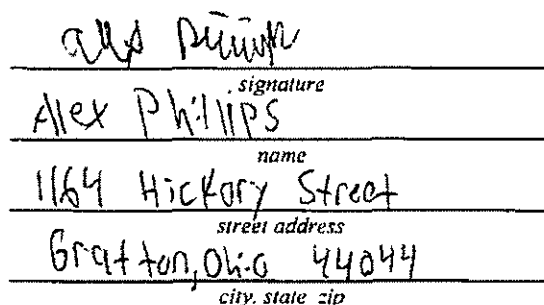 signature
Alex Phillips
name
1164 Hickory Street
street address
Gratton, Ohio 44044
city, state zip